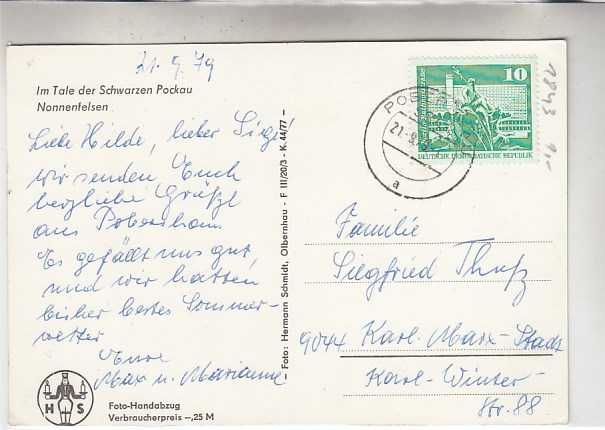 21. 9. 79
Im Tale der Schwarzen Pockau
Nonnenfelsen
Liebe Hilde, lieber Siegi
wir senden Euch
herzliche Grüße
aus Pobershau.
Es gefällt uns gut,
und wir hatten
bisher bestes Sommer-
wetter
Eure
Max u. Marianne
H S
Foto-Handabzug
Verbraucherpreis –,25 M
– Foto: Hermann Schmidt, Olbernhau - F III/20/3 - K 44/77 –
10
DEUTSCHE DEMOKRATISCHE REPUBLIK
21.-9.
a
1843
Familie
Siegfried
9044 Karl-Marx-Stadt
Karl-Winter-
Str. 88